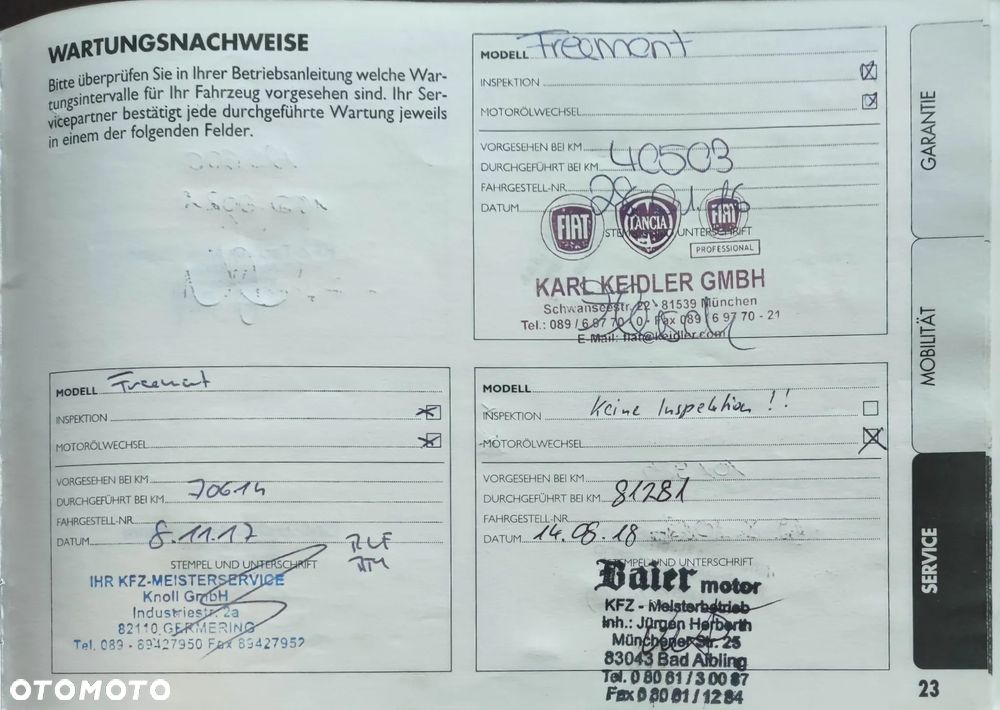 WARTUNGSNACHWEISE
Bitte überprüfen Sie in Ihrer Betriebsanleitung welche War-
tungsintervalle für Ihr Fahrzeug vorgesehen sind. Ihr Ser-
vicepartner bestätigt jede durchgeführte Wartung jeweils
in einem der folgenden Felder.
MODELL Freemont
INSPEKTION
MOTORÖLWECHSEL
VORGESEHEN BEI KM
DURCHGEFÜHRT BEI KM 40503
FAHRGESTELL-NR.
DATUM 28.01.16
STEMPEL UND UNTERSCHRIFT
FIAT LANCIA FIAT
PROFESSIONAL
KARL KEIDLER GMBH
Schwanseestr. 22 · 81539 München
Tel.: 089 / 6 97 70 - 0 · Fax 089 / 6 97 70 - 21
E-Mail: fiat@keidler.com
MODELL Freemont
INSPEKTION
MOTORÖLWECHSEL
VORGESEHEN BEI KM
DURCHGEFÜHRT BEI KM 70614
FAHRGESTELL-NR.
DATUM 8.11.17
STEMPEL UND UNTERSCHRIFT
IHR KFZ-MEISTERSERVICE
Knoll GmbH
Industriestr. 2a
82110 GERMERING
Tel. 089 - 89427950 Fax 89427952
MODELL
INSPEKTION Keine Inspektion !!
MOTORÖLWECHSEL
VORGESEHEN BEI KM
DURCHGEFÜHRT BEI KM 81281
FAHRGESTELL-NR.
DATUM 14.08.18
STEMPEL UND UNTERSCHRIFT
Baier motor
KFZ - Meisterbetrieb
Inh.: Jürgen Herberth
Münchener Str. 25
83043 Bad Aibling
Tel. 0 80 61 / 3 00 87
Fax 0 80 61 / 12 84
GARANTIE
MOBILITÄT
SERVICE
23
OTOMOTO